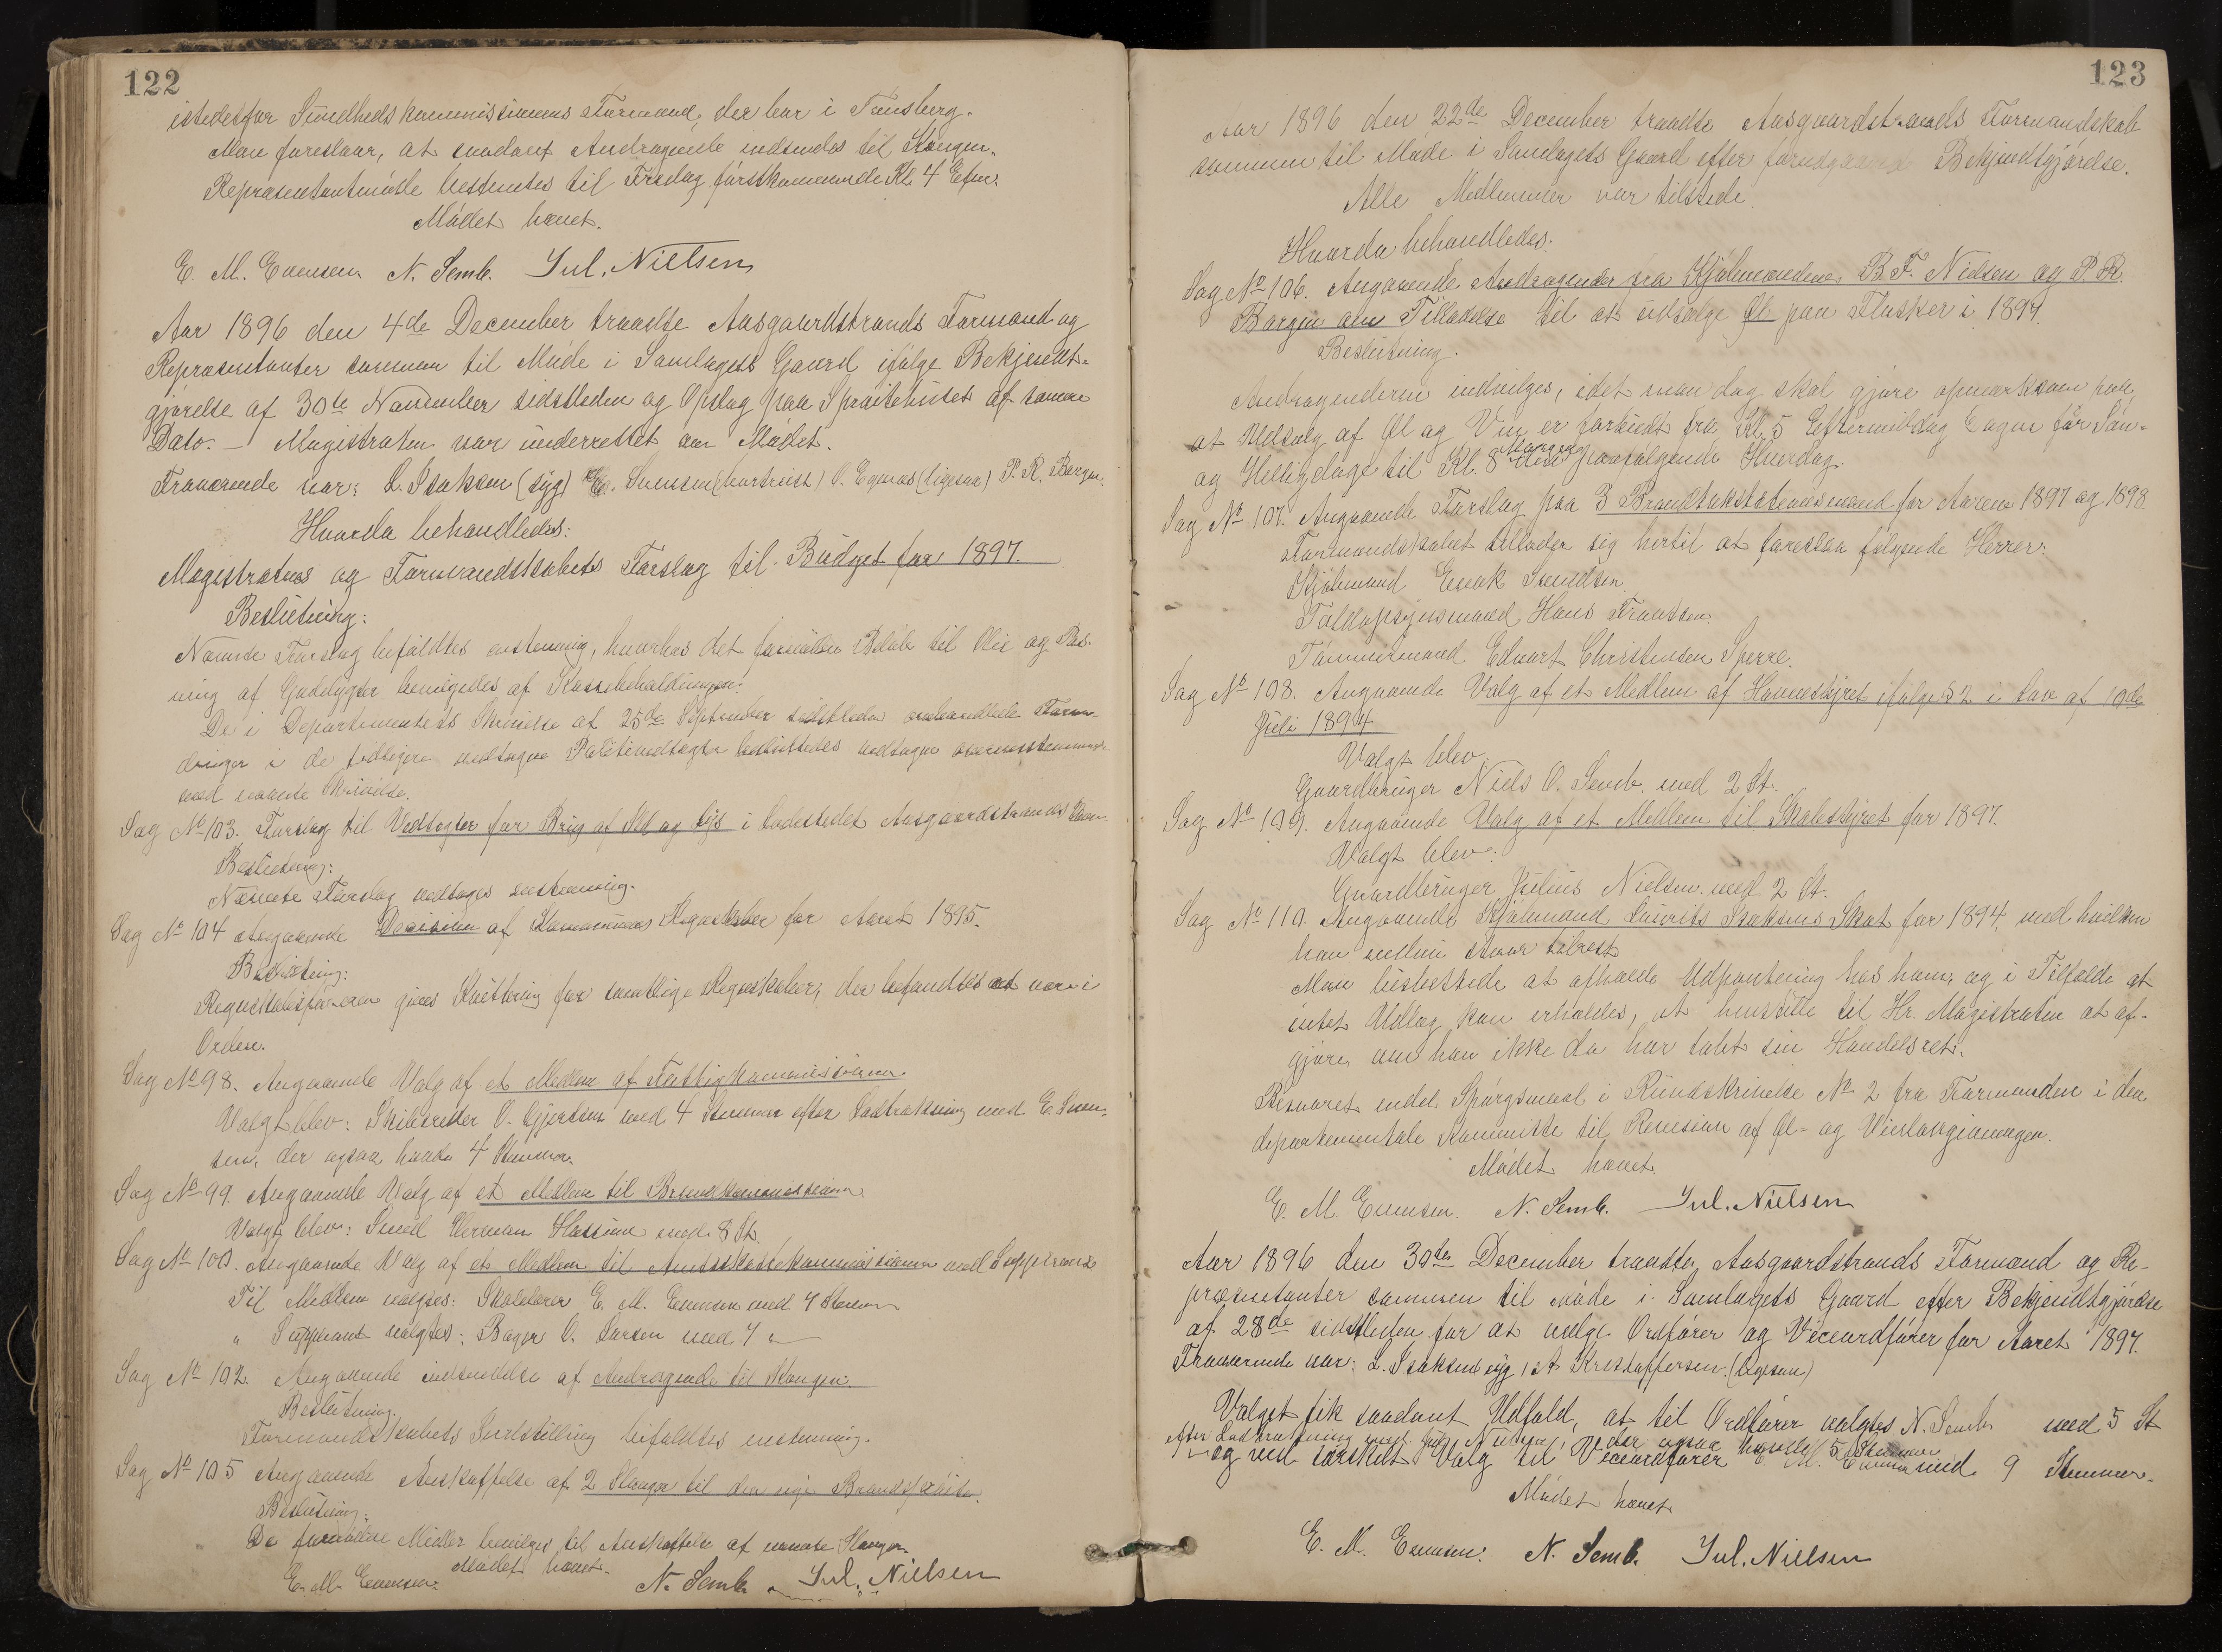 122
istedetfor Sundhedskommissionens Formand, der bor i Tønsberg.
Man foreslaar, at saadant Andragende indsendes til Kongen.
Repræsentantmøde bestemtes til Fredag førstkommende Kl. 4 Efm.
Mødet hævet.
E. M. Evensen N. Semb. Jul. Nielsen
Aar 1896 den 4de December traadte Aasgaardstrands Formænd og
Repræsentanter sammen til Møde i Samlagets Gaard ifølge Bekjendt-
gjørelse af 30te November sidstleden og Opslag paa Sprøitehuset af samme
Dato. — Magistraten var underrettet om Mødet.
Fraværende var: L. Isaksen (syg) E. Svensen (bortreist) O. (ligesaa) P. R. Bergan.
Hvorda behandledes:
Magistratens og Formandskabets Forslag til Budget for 1897.
Beslutning:
Nævnte Forslag bifaldtes enstemmig, hvorhos det fornødne Beløb til Olie og Pas-
ning af Gadelygter bevilgedes af Kassebeholdningen.
De i Departementets Skrivelse af 25de September sidstleden omhandlede Foran-
dringer i de tidligere vedtagne Politivedtægter besluttedes vedtagne overensstemmende
med nævnte Skrivelse.
Sag No 103. Forslag til Vedtægter for Brug af Ild og Lys i Ladestedet Aasgaardstrands Havn.
Beslutning:
Nævnte Forslag vedtages enstemmig.
Sag No 104 Angaaende Decision af Kommunens Regnskaber for Aaret 1895.
Beslutning:
Regnskabsføreren gives Kvittering for samtlige Regnskaber, der befandtes at være i
Orden.
Sag No 98. Angaaende Valg af et Medlem af Fattigkommissionen.
Valgt blev: Skibsreder O. Gjertsen med 4 Stemmer efter Lodtrækning med E. Sven-
sen, der ogsaa havde 4 Stemmer.
Sag No 99. Angaaende Valg af et Medlem til Brandkommissionen.
Valgt blev: Smed Herman med 8 St.
Sag No 100. Angaaende Valg af et Medlem til Amtsskattekommissionen med Suppleant
Til Medlem valgtes: Skolelærer E. M. Evensen med 7 Stemmer
" Suppleant valgtes: Bager O. Larsen med 7 "
Sag No 102. Angaaende indsendelse af Andragende til Kongen.
Beslutning.
Formandskabets Indstilling bifaldtes enstemmig.
Sag No 105 Angaaende Anskaffelse af 2 Slanger til den nye Brandsprøite.
Beslutning:
De fornødne Midler bevilges til Anskaffelse af nævnte Slanger.
Mødet hævet.
E. M. Evensen. N. Semb. Jul. Nielsen
123
Aar 1896 den 22de December traadte Aasgaardstrands Formandskab
sammen til Møde i Samlagets Gaard efter forudgaaende Bekjendtgjørelse.
Alle Medlemmer var tilstede.
Hvorda behandledes:
Sag No 106. Angaaende Andragender fra Kjøbmændene B. F. Nielsen og P. R.
Bergan om Tilladelse til at udsælge Øl paa Flasker i 1897.
Beslutning.
Andragenderne indvilges, idet man dog skal gjøre opmærksom paa,
at Udsalg af Øl og Vin er forbudt fra Kl. 5 Eftermiddag Dagen før Søn-
og Helligdage til Kl. 8 Morgen paafølgende Hverdag.
Sag No 107. Angaaende Forslag paa 3 Brandtakstationsmænd for Aarene 1897 og 1898.
Formandskabet tillader sig hertil at foreslaa følgende Herrer:
Kjøbmand Enok Svendsen.
Toldopsynsmand Hans Frantsen.
Tømmermand Edvart Christensen Sperre.
Sag No 108. Angaaende Valg af et Medlem af Havnestyret ifølge § 2 i Lov af 10de
Juli 1894
Valgt blev:
Gaardbruger Niels O. Semb. med 2 St.
Sag No 109. Angaaende Valg af et Medlem til Skolestyret for 1897.
Valgt blev:
Gaardbruger Julius Nielsen med 2 St.
Sag No 110. Angaaende Kjøbmand Laurits Isaksens Skat for 1894, med hvilken
han endnu staar tilrest
Man besluttede at afholde Udpantning hos ham, og i Tilfælde at
intet Udlæg kan erholdes, at henstille til Hr. Magistraten at af-
gjøre, om han ikke da har tabt sin Handelsret.
Besvaret endel Spørgsmaal i Rundskrivelse No 2 fra Formanden i den
departementale Kommitte til Revision af Øl- og Vinlovgivningen.
Mødet hævet.
E. M. Evensen. N. Semb. Jul. Nielsen
Aar 1896 den 30te December traadte Aasgaardstrands Formænd og Re-
præsentanter sammen til møde i Samlagets Gaard efter Bekjendtgjørelse
af 28de sidstleden for at vælge Ordfører og Viceordfører for Aaret 1897.
Fraværende var: L. Isaksen syg, A. Kristoffersen (ligesaa)
Valget fik saadant Udfald, at til Ordfører valgtes N. Semb med 5 St
efter Lodtrækning med Jul. Nielsen, der ogsaa havde 5 Stemmer
og ved særskilt Valg til Viceordfører E. M. Evensen med 9 Stemmer.
Mødet hævet
E. M. Evensen. N. Semb. Jul. Nielsen